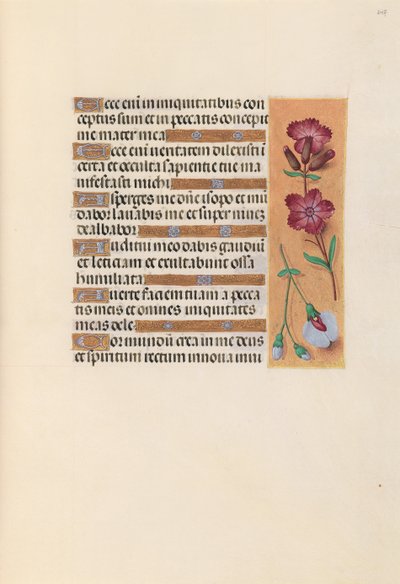 Ecce eni in iniquitatibus con
ceptus sum et in peccatis concepit
me mater mea
Ecce eni ueritatem dilexisti
certa et occulta sapientie tue ma
nifestasti michi
Asperges me dne isopo et mū
dabor lauabis me et super niuez
dealbabor
Auditui meo dabis gaudiū
et leticiam et exultabunt ossa
humiliata
Auerte faciem tuam a pecca
tis meis et omnes iniquitates
meas dele
Cor mundū crea in me deus
et spiritum rectum innoua in ui